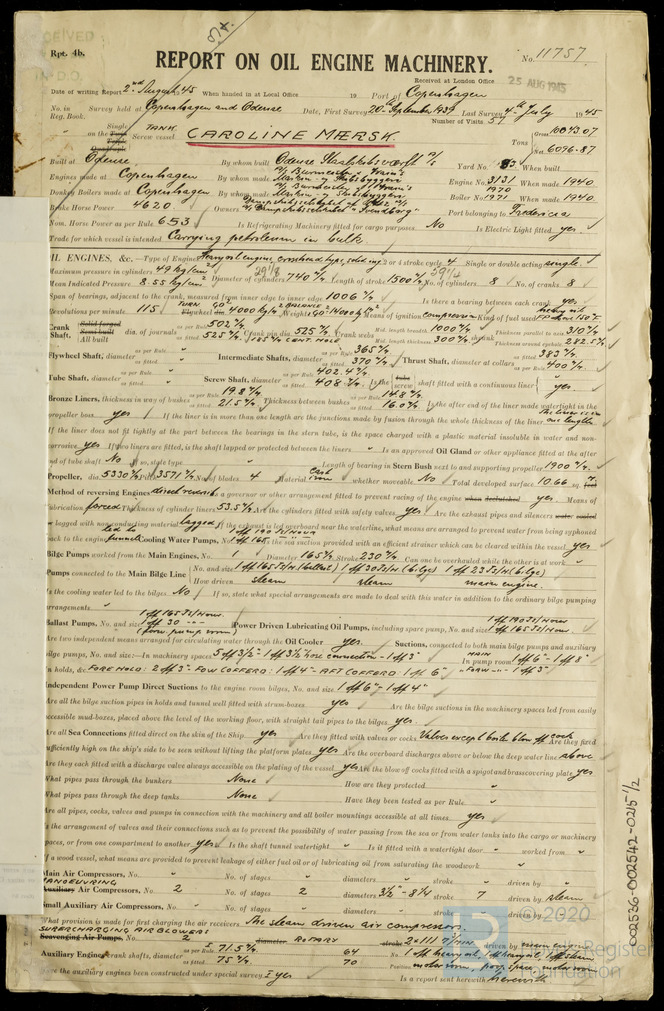 Rpt. 4b.
REPORT ON OIL ENGINE MACHINERY.
No. 11757
Received at London Office
25 AUG 1945
Date of writing Report 2nd August 45 When handed in at Local Office 19 Port of Copenhagen
No. in Survey held at Copenhagen and Odense Date, First Survey 20th September 1939 Last Survey 4th July 1945
Reg. Book. Number of Visits 57
Single
on the Triple Screw vessel TANK CAROLINE MÆRSK.
Tons Gross 10043.07
Net 6096.87
Built at Odense By whom built Odense Staalskibsværft A/S Yard No. 83 When built
Engines made at Copenhagen By whom made A/S Burmeister & Wain's Engine No. 3131 When made 1940
Donkey Boilers made at Copenhagen By whom made Boiler No. 1970 1971 When made 1940
Brake Horse Power 4620 Owners Port belonging to Fredericia
Nom. Horse Power as per Rule 653 Is Refrigerating Machinery fitted for cargo purposes No Is Electric Light fitted yes
Trade for which vessel is intended Carrying petroleum in bulk
OIL ENGINES, &c.—Type of Engine Heavy oil engine, crosshead type, solid inj 2 or 4 stroke cycle 4 Single or double acting single
Maximum pressure in cylinders 49 kg/cm² Diameter of cylinders 740 m/m Length of stroke 1500 m/m No. of cylinders 8 No. of cranks 8
Mean Indicated Pressure 8.55 kg/cm²
Span of bearings, adjacent to the crank, measured from inner edge to inner edge 1006 m/m Is there a bearing between each crank yes
Revolutions per minute 115 Means of ignition compression Kind of fuel used heavy oil
Crank Shaft, Solid forged Semi built All built dia. of journals as per Rule 502 m/m as fitted 525 m/m Crank pin dia. 525 m/m Crank webs Mid. length breadth 1000 m/m Mid. length thickness 300 m/m Thickness parallel to axis 310 m/m Thickness around eyehole 282.5 m/m
Flywheel Shaft, diameter as per Rule as fitted Intermediate Shafts, diameter as per Rule 365 m/m as fitted 370 m/m Thrust Shaft, diameter at collars as per Rule 383 m/m as fitted 400 m/m
Tube Shaft, diameter as per Rule as fitted Screw Shaft, diameter as per Rule 402.4 m/m as fitted 408 m/m Is the tube screw shaft fitted with a continuous liner yes
Bronze Liners, thickness in way of bushes as per Rule 19.8 m/m as fitted 21.5 m/m Thickness between bushes as per Rule 14.8 m/m as fitted 16.0 m/m Is the after end of the liner made watertight in the
propeller boss yes If the liner is in more than one length are the junctions made by fusion through the whole thickness of the liner The liner is in one length
If the liner does not fit tightly at the part between the bearings in the stern tube, is the space charged with a plastic material insoluble in water and non-
corrosive yes If two liners are fitted, is the shaft lapped or protected between the liners " Is an approved Oil Gland or other appliance fitted at the after
end of tube shaft No If so, state type Length of bearing in Stern Bush next to and supporting propeller 1900 m/m
Propeller, dia. 5330 m/m Pitch 3571 m/m No. of blades 4 Material Cast iron whether moveable No Total developed surface 10.66 sq.
Method of reversing Engines direct reversible Is a governor or other arrangement fitted to prevent racing of the engine when declutched yes Means of
lubrication forced Thickness of cylinder liners 53.5 m/m Are the cylinders fitted with safety valves yes Are the exhaust pipes and silencers water cooled
or lagged with non-conducting material lagged If the exhaust is led overboard near the waterline, what means are arranged to prevent water being syphoned
back to the engine led to funnel Cooling Water Pumps, No. Is the sea suction provided with an efficient strainer which can be cleared within the vessel yes
Bilge Pumps worked from the Main Engines, No. 1 Diameter 165 m/m Stroke 230 m/m Can one be overhauled while the other is at work "
Pumps connected to the Main Bilge Line No. and size 1 off 165 Ts/H. (ballast) 1 off 30 Ts/H. (bilge) 1 off 23 Ts/H. (bilge)
How driven steam steam main engine.
Is the cooling water led to the bilges No. If so, state what special arrangements are made to deal with this water in addition to the ordinary bilge pumping
arrangements "
Ballast Pumps, No. and size 1 off 165 Ts/Hour 1 off 30 -"- (fore pump room) Power Driven Lubricating Oil Pumps, including spare pump, No. and size 1 off 165 Ts/Hour
Are two independent means arranged for circulating water through the Oil Cooler yes. Suctions, connected to both main bilge pumps and auxiliary
bilge pumps, No. and size:—In machinery spaces 5 off 3½" - 1 off 3½" hose connection - 1 off 3" In pump room MAIN 1 off 6" - 1 off 8" FORW -"- 1 off 3"
In holds, &c. FORE HOLD: 2 off 3" - FORW COFFERD: 1 off 4" - AFT COFFERD 1 off 6"
Independent Power Pump Direct Suctions to the engine room bilges, No. and size 1 off 6" - 1 off 4"
Are all the bilge suction pipes in holds and tunnel well fitted with strum-boxes yes Are the bilge suctions in the machinery spaces led from easily
accessible mud-boxes, placed above the level of the working floor, with straight tail pipes to the bilges yes.
Are all Sea Connections fitted direct on the skin of the Ship yes Are they fitted with valves or cocks Valves except boiler blow off cock Are they fixed
sufficiently high on the ship's side to be seen without lifting the platform plates yes Are the overboard discharges above or below the deep water line above
Are they each fitted with a discharge valve always accessible on the plating of the vessel yes Are the blow off cocks fitted with a spigot and brass covering plate yes
What pipes pass through the bunkers None How are they protected "
What pipes pass through the deep tanks None Have they been tested as per Rule "
Are all pipes, cocks, valves and pumps in connection with the machinery and all boiler mountings accessible at all times yes
Is the arrangement of valves and their connections such as to prevent the possibility of water passing from the sea or from water tanks into the cargo or machinery
spaces, or from one compartment to another yes Is the shaft tunnel watertight " Is it fitted with a watertight door " worked from "
If a wood vessel, what means are provided to prevent leakage of either fuel oil or of lubricating oil from saturating the woodwork "
Main Air Compressors, No. " No. of stages " diameters " stroke " driven by "
MANOEUVRING
Auxiliary Air Compressors, No. 2 No. of stages 2 diameters 3½" - 8¼ stroke 7 driven by steam
Small Auxiliary Air Compressors, No. " No. of stages " diameters " stroke " driven by "
What provision is made for first charging the air receivers The steam driven air compressor.
SUPERCHARGING AIR BLOWERS
Scavenging Air Pumps, No. 2 diameter ROTARY stroke driven by main engine
Auxiliary Engines crank shafts, diameter as per Rule 71.5 m/m as fitted 75 m/m 64 70 No. Position
Have the auxiliary engines been constructed under special survey yes Is a report sent herewith herewith
002536-002542-0215 1/2
© 2020
Lloyd's Register
Foundation